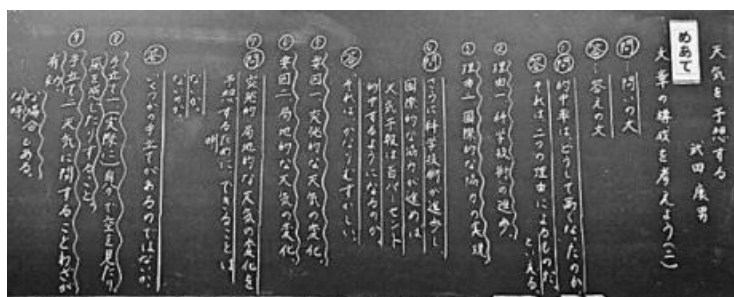 天気を予想する
武田康男
めあて
文章の構成を考えよう(二)
問 問いの文
答 答えの文
①問 的中率は、どうして高くなったのか
答 それは、二つの理由によるものだ、
といえる
② 理由一 科学技術の進歩
③ 理由二 国際的な協力の実現
④問 さらに科学技術が進歩し、
国際的な協力が進めば、
天気予報は百パーセント
的中するようになるのか。
答 それは、かなりむずかしい。
⑤ 要因一、突発的な天気の変化
⑥ 要因二、局地的な天気の変化
⑦問 突発的、局地的な天気の変化を
予想するために、できることは
ないか。
ないのか
答 いくつかの手立てがあるのではないか。
⑧ 手立て一(実際に)自分で空を見たり
風を感じたりすること。
⑨ 手立て二 天気に関することわざが
有効
な場合もある。